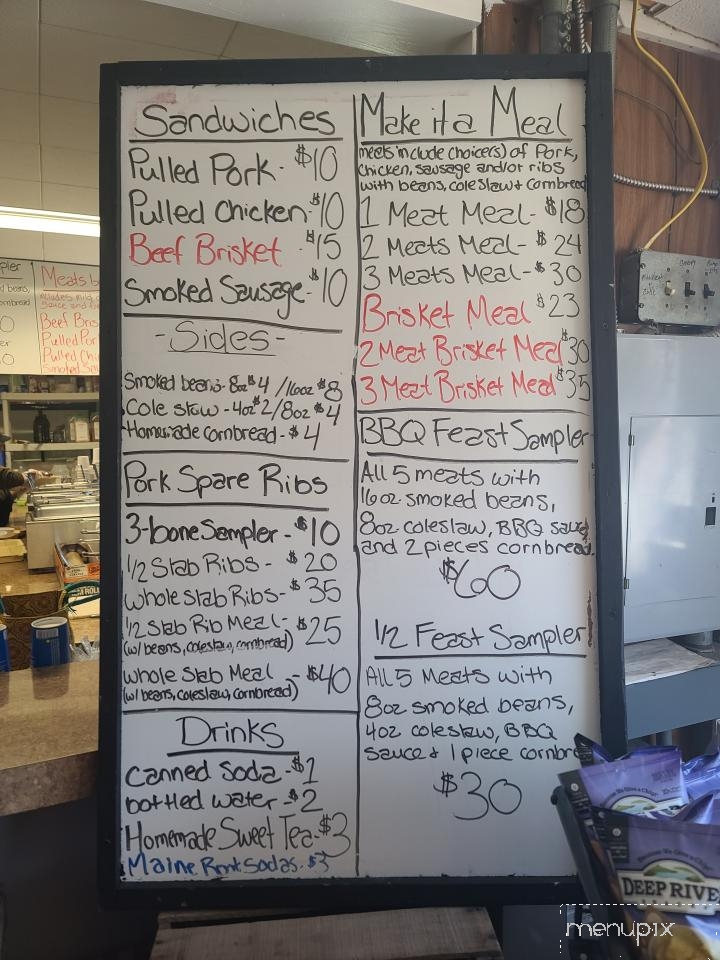 Sandwiches
Pulled Pork - $10
Pulled Chicken - $10
Beef Brisket $15
Smoked Sausage - $10
- Sides -
Smoked beans - 8oz $4 / 16oz $8
Cole slaw - 4oz $2 / 8oz $4
Homemade cornbread - $4
Pork Spare Ribs
3-bone Sampler - $10
1/2 Slab Ribs - $20
whole slab Ribs - $35
1/2 Slab Rib Meal - $25
(w/ beans, coleslaw, cornbread)
whole Slab Meal - $40
(w/ beans, coleslaw, cornbread)
Drinks
canned Soda - $1
bottled water - $2
Homemade Sweet Tea - $3
Maine Root Sodas - $3
Make it a Meal
meals include choice(s) of Pork,
chicken, sausage and/or ribs
with beans, coleslaw + cornbread
1 Meat Meal - $18
2 Meats Meal - $24
3 Meats Meal - $30
Brisket Meal $23
2 Meat Brisket Meal $30
3 Meat Brisket Meal $35
BBQ Feast Sampler
All 5 meats with
16oz smoked beans,
8oz coleslaw, BBQ sauce
and 2 pieces cornbread.
$60
1/2 Feast Sampler
All 5 Meats with
8oz smoked beans,
4oz coleslaw, BBQ
sauce + 1 piece cornbre
$30
Meats b
Beef Bris
Pulled Por
Pulled Chi
Smoked Sau
DEEP RIVE
menupix